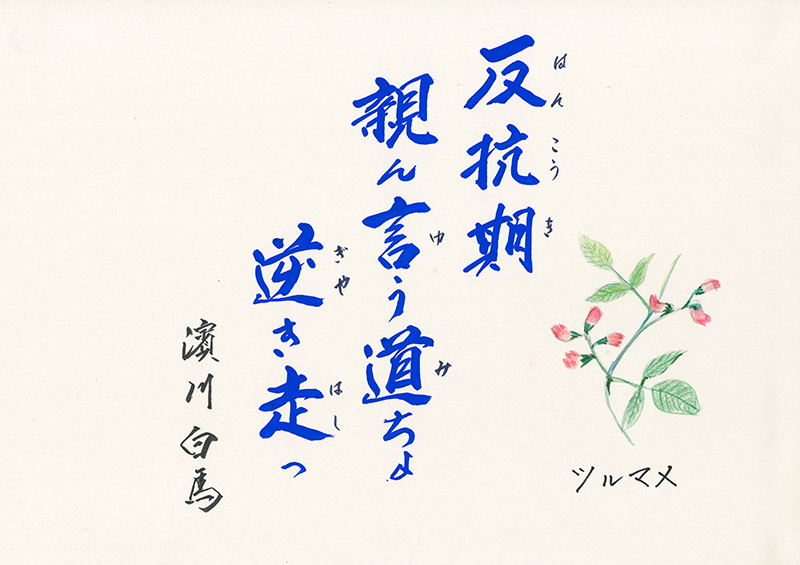 はんこうき
反抗期
ゆ み
親ん言う道ちょ
ぎや はし
逆き走っ
濱川白馬
ツルマメ